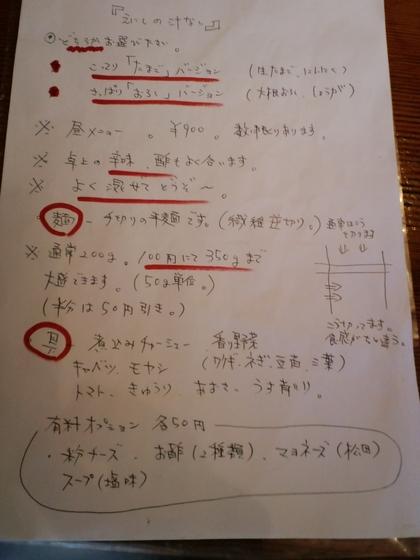 『えいじの汁なし』
◎どちらかお選び下さい。
● こってり「たまご」バージョン (生たまご、にんにく)
● さっぱり「おろし」バージョン (大根おろし、しょうが)
※ 昼メニュー 。 ¥900。 数に限りあります。
※ 卓上の辛味、酢もよく合います。
※ よく混ぜてどうぞ〜。
麺 ー 手切りの平麺です。(繊維逆切り。)
通常はこう
切ります
※ 通常200g。100円にて350gまで
大盛できます。(50g単位。)
(半分は50円引き。)
こう切ってます。
食感がでい違う。
具 煮込みチャーシュー 香り野菜
キャベツ、モヤシ (ネギ、豆苗、三葉)
トマト、きゅうり、
有料オプション 各50円
・粉チーズ 、お酢(2種類)、マヨネーズ(松田)
スープ(塩味)